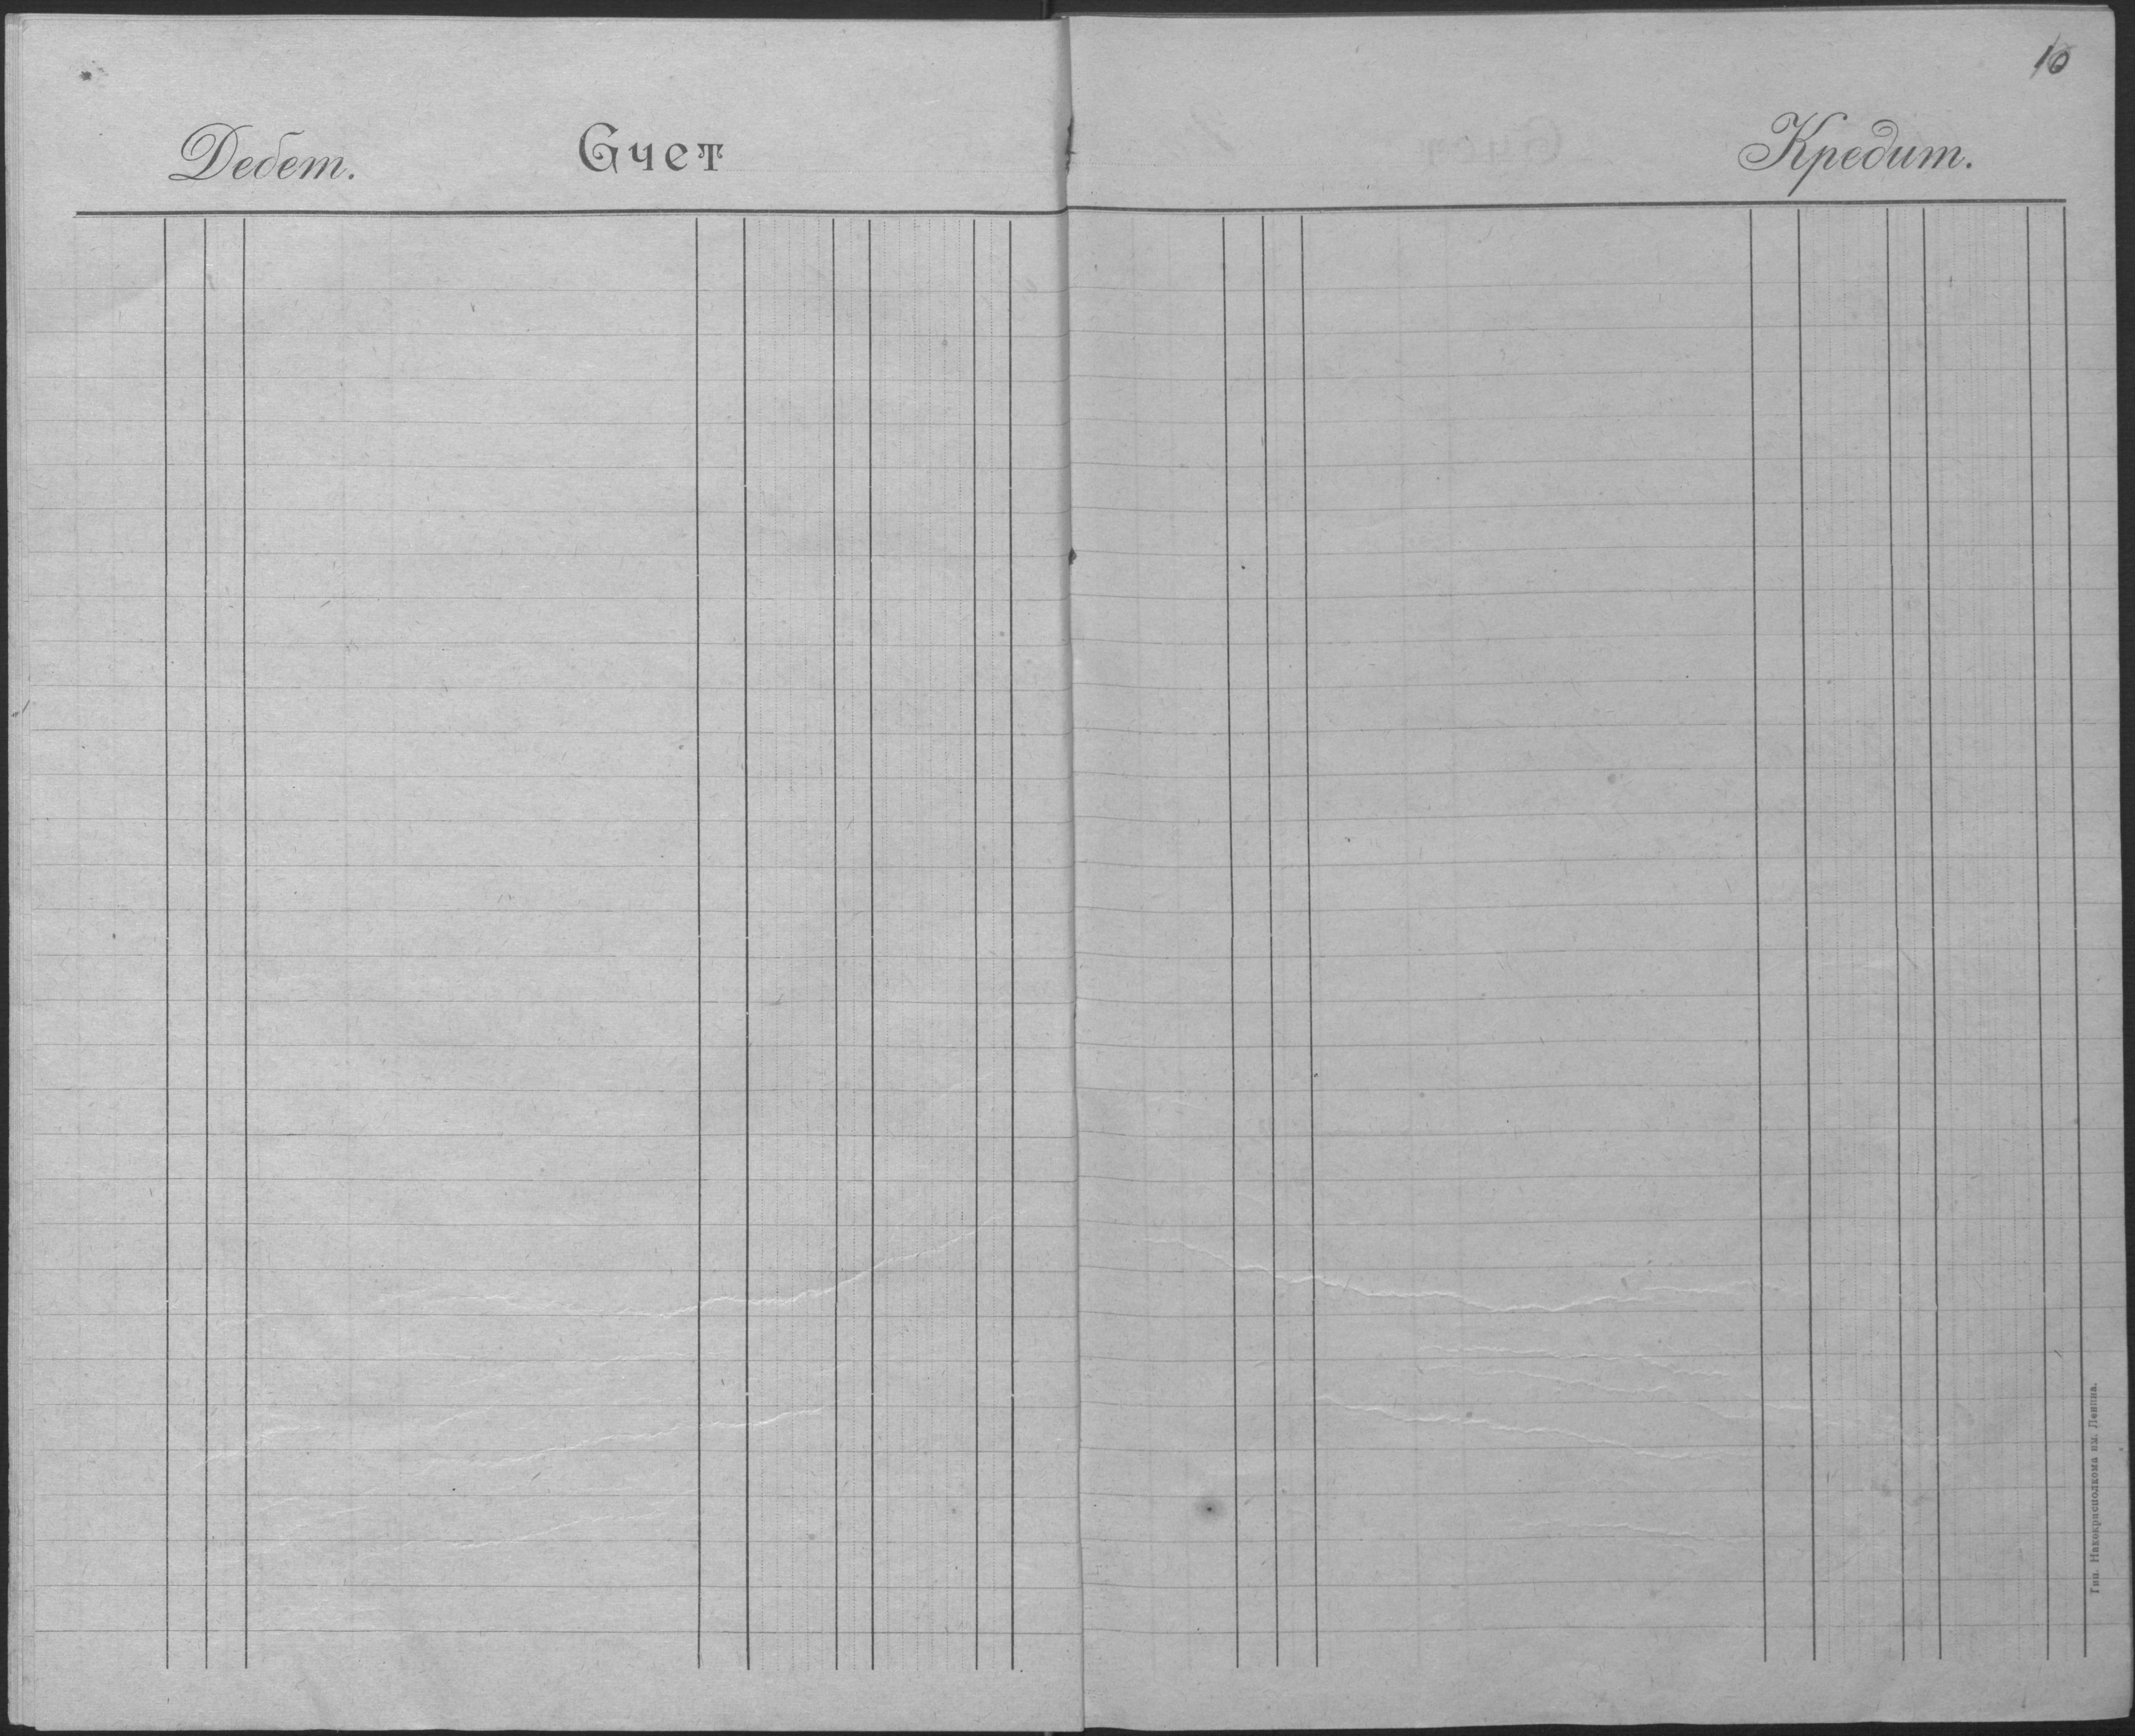 10
Дебет. Счет Кредит.
Тип. Накокрисполкома им. Ленина.